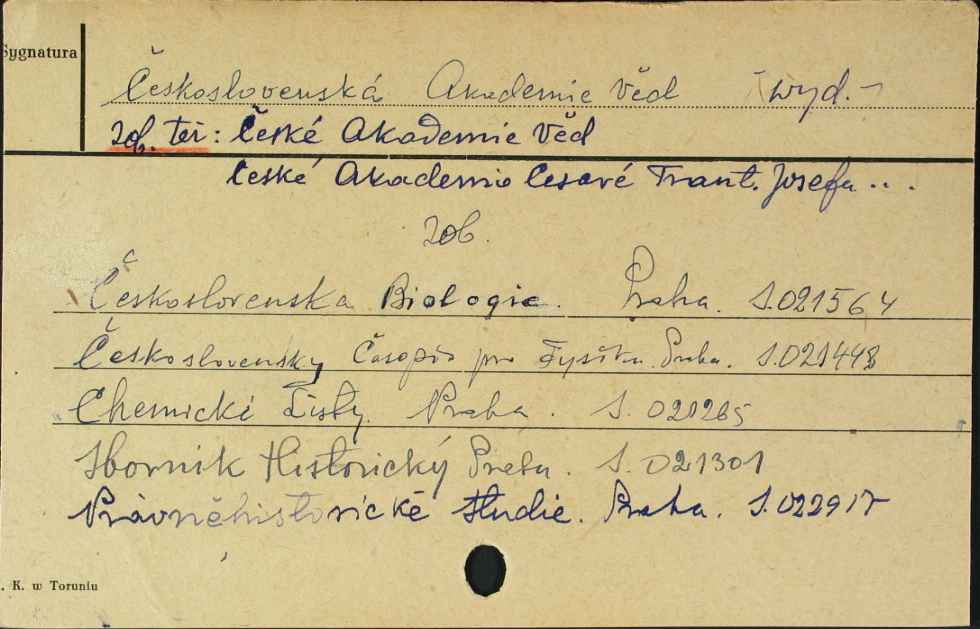 Sygnatura
Československá Akademie Věd wyd.
zob. też: České Akademie Věd
České Akademie Cesaré Frant. Josefa ...
zob.
Československa Biologie. Praha. S.021564
Československy Časopis pro Fysiku Praha. S.021448
Chemické Listy. Praha. S. 021265
Sbornik Historický Praha. S. 021301
Právněhistorické Studie. Praha. S.022917
. K. w Toruniu